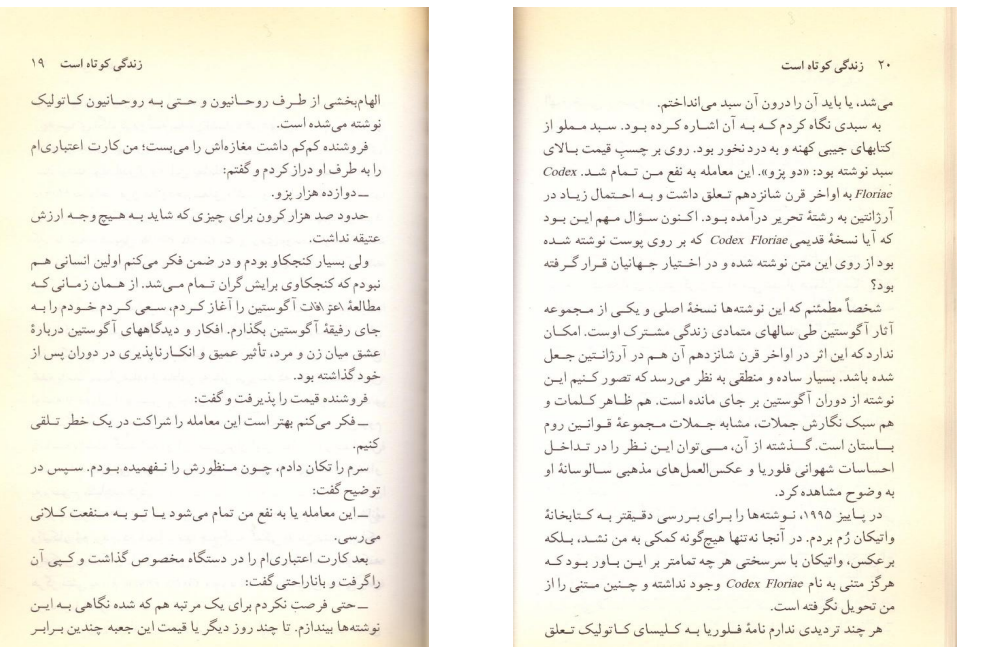 زندگی کوتاه است ۱۹
الهام‌بخشی از طرف روحانیون و حتی به روحانیون کاتولیک
نوشته می‌شده است.
فروشنده کم‌کم داشت مغازه‌اش را می‌بست؛ من کارت اعتباری‌ام
را به طرف او دراز کردم و گفتم:
ــ دوازده هزار پزو.
حدود صد هزار کرون برای چیزی که شاید به هیچ وجه ارزش
عتیقه نداشت.
ولی بسیار کنجکاو بودم و در ضمن فکر می‌کنم اولین انسانی هم
نبودم که کنجکاوی برایش گران تمام می‌شد. از همان زمانی که
مطالعهٔ اعترافات آگوستین را آغاز کردم، سعی کردم خودم را به
جای رفیقهٔ آگوستین بگذارم. افکار و دیدگاههای آگوستین دربارهٔ
عشق میان زن و مرد، تأثیر عمیق و انکارناپذیری در دوران پس از
خود گذاشته بود.
فروشنده قیمت را پذیرفت و گفت:
ــ فکر می‌کنم بهتر است این معامله را شراکت در یک خطر تلقی
کنیم.
سرم را تکان دادم، چون منظورش را نفهمیده بودم. سپس در
توضیح گفت:
ــ این معامله یا به نفع من تمام می‌شود یا تو به منفعت کلانی
می‌رسی.
بعد کارت اعتباری‌ام را در دستگاه مخصوص گذاشت و کپی آن
را گرفت و با ناراحتی گفت:
ــ حتی فرصت نکردم برای یک مرتبه هم که شده نگاهی به این
نوشته‌ها بیندازم. تا چند روز دیگر یا قیمت این جعبه چندین برابر
۲۰ زندگی کوتاه است
می‌شد، یا باید آن را درون آن سبد می‌انداختم.
به سبدی نگاه کردم که به آن اشاره کرده بود. سبد مملو از
کتابهای جیبی کهنه و به درد نخور بود. روی بر چسبِ قیمت بالای
سبد نوشته بود: «دو پزو». این معامله به نفع من تمام شد. Codex
Floriae به اواخر قرن شانزدهم تعلق داشت و به احتمال زیاد در
آرژانتین به رشتهٔ تحریر درآمده بود. اکنون سؤال مهم این بود
که آیا نسخهٔ قدیمی Codex Floriae که بر روی پوست نوشته شده
بود از روی این متن نوشته شده و در اختیار جهانیان قرار گرفته
بود؟
شخصاً مطمئنم که این نوشته‌ها نسخهٔ اصلی و یکی از مجموعه
آثار آگوستین طی سالهای متمادی زندگی مشترک اوست. امکان
ندارد که این اثر در اواخر قرن شانزدهم آن هم در آرژانتین جعل
شده باشد. بسیار ساده و منطقی به نظر می‌رسد که تصور کنیم این
نوشته از دوران آگوستین بر جای مانده است. هم ظاهر کلمات و
هم سبک نگارش جملات، مشابه جملات مجموعهٔ قوانین روم
باستان است. گذشته از آن، می‌توان این نظر را در تداخل
احساسات شهوانی فلوریا و عکس‌العمل‌های مذهبی سالوسانهٔ او
به وضوح مشاهده کرد.
در پاییز ۱۹۹۵، نوشته‌ها را برای بررسی دقیقتر به کتابخانهٔ
واتیکان رُم بردم. در آنجا نه‌تنها هیچ‌گونه کمکی به من نشد، بلکه
برعکس، واتیکان با سرسختی هر چه تمامتر بر این باور بود که
هرگز متنی به نام Codex Floriae وجود نداشته و چنین متنی را از
من تحویل نگرفته است.
هر چند تردیدی ندارم نامهٔ فلوریا به کلیسای کاتولیک تعلق